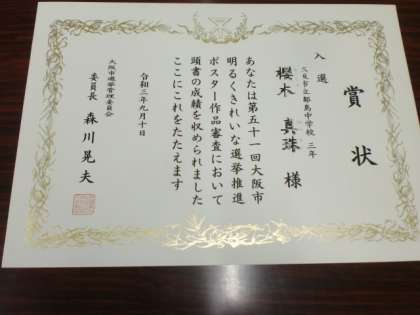 賞状
入選
大阪市立都島中学校 三年
櫻木 真珠 様
あなたは第五十一回大阪市
明るくきれいな選挙推進
ポスター作品審査において
頭書の成績を収められました
ここにこれをたたえます
令和三年九月十日
大阪市選挙管理委員会
委員長 森川晃夫